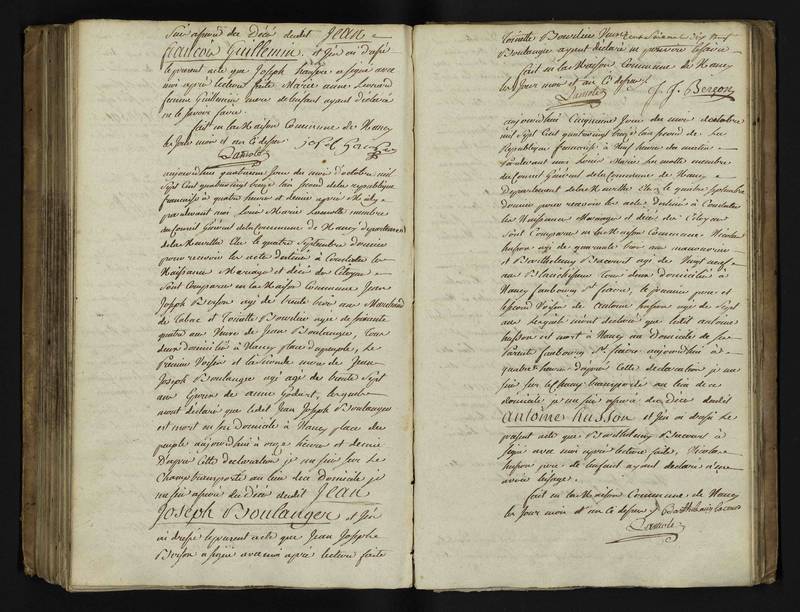 Suis assuré du Décé dudit Jean
francois Guillemin. et j'en ai dressé
le present acte que Joseph a signé avec
moi après lecture faite Marie anne
femme Guillemin mere de l'enfant ayant déclaré
ne le savoir faire.
fait en la Maison Commune de Nancy
les Jour mois et an Ci dessus
Lamotte
aujourdhui quatrieme Jour du mois d'octobre mil
Sept Cent quatrevingt treize l'an second de la republique
francaise à quatre heure et demie après Midy
pardevant moi Louis Marie Lamotte membre
du Conseil Général de la Commune de Nancy departement
de la Meurthe Elu le quatre Septembre dernier
pour recevoir les acte destinés à Constater les
Naissance Mariage et décés des Citoyens
Sont Comparus en la Maison Commune Jean
Joseph Berson agé de trente trois ans Marchand
de Tabac et Toinette Bourdin agée de soixante
quatre ans Veuve de Jean Boulanger, tous
deux domiciliés à Nancy place du peuple, le
Premier Voisin et la Seconde mere de Jean
Joseph Boulanger agé de trente Sept
ans Epoux de anne lesquels
mont déclaré que ledit Jean Joseph Boulanger
est mort en son Domicile à Nancy place du
peuple aujourdhui à onze heure et demie
D'après Cette declaration je me suis sur le
Champ transporté au lieu du Domicile je
me suis assuré du Décé dudit Jean
Joseph Boulanger et j'en
ai dressé le present acte que Jean Josephe
Berson a signé avec moi après lecture faite
Toinette Bourdin Veuve
Boulanger ayant declaré ne pouvoir le faire
fait en la Maison Commune de Nancy
les Jour mois et an Ci dessus
Lamotte J. J. Berson
aujourdhui Cinquieme Jour du mois doctobre
mil Sept Cent quatrevingt treize l'an second de la
Republique francaise à Neuf heure du matin
Pardevant moi Louis Marie Lamotte membre
du Conseil Général de la Commune de Nancy
Departement de la Meurthe Elu le quatre Septembre
dernier pour recevoir les acte destinés à Constater
les Naissance Mariage et décés des Citoyens
Sont Comparus en la Maison Commune Nicolas
husson agé de quarante trois ans manoeuvre
et Barthelemy Bacourt agé de Vingt neuf
ans Blanchisseur tous deux domiciliés à
Nancy faubourg St fiacre, le premier pere et
le second Voisin de antoine husson agé de Sept
ans lesquels mont declaré que ledit antoine
husson est mort à Nancy au Domicile de ses
Parents faubourg St fiacre aujourdhui à
quatre heure d'après Cette declaration je me
suis sur le Champ transporté au lieu de ce
domicile je me suis assuré du Décé dudit
antoine husson et j'en ai dressé le
present acte que Barthelemy Bacourt à
signé avec moi après lecture faite, Nicolas
husson pere de l'enfant ayant declaré n'en
avoir l'usage.
fait en la Maison Commune de Nancy
les Jour mois et an Ci dessus
Lamotte